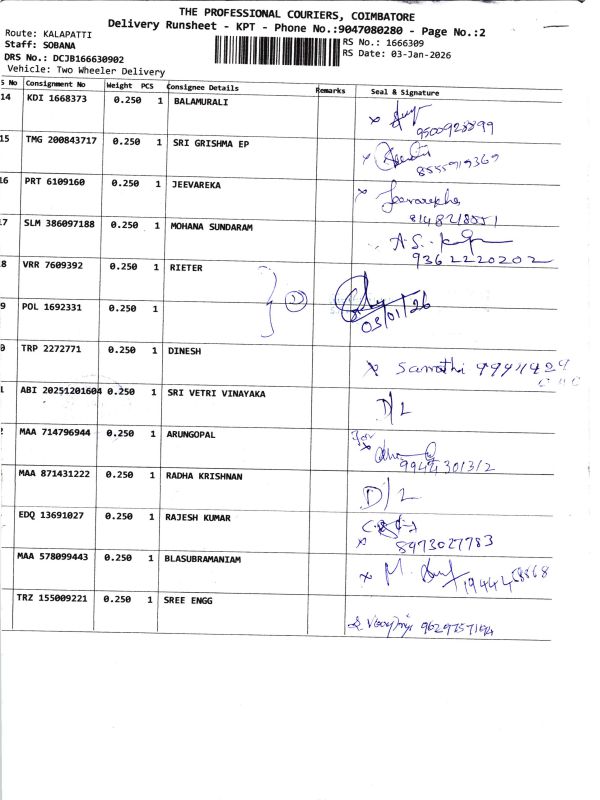 THE PROFESSIONAL COURIERS, COIMBATORE
Delivery Runsheet - KPT - Phone No.:9047080280 - Page No.:2
Route: KALAPATTI
Staff: SOBANA
DRS No.: DCJB166630902
Vehicle: Two Wheeler Delivery
RS No.: 1666309
RS Date: 03-Jan-2026
S No Consignment No Weight PCS Consignee Details Remarks Seal & Signature
14 KDI 1668373 0.250 1 BALAMURALI
9500928899
15 TMG 200843717 0.250 1 SRI GRISHMA EP
8555919369
16 PRT 6109160 0.250 1 JEEVAREKA
Jeevarekha
8148218551
17 SLM 386097188 0.250 1 MOHANA SUNDARAM
A.S.
9362220202
8 VRR 7609392 0.250 1 RIETER
2
03/01/26
9 POL 1692331 0.250 1
0 TRP 2272771 0.250 1 DINESH
x Sarathi
1 ABI 20251201604 0.250 1 SRI VETRI VINAYAKA
D/L
2 MAA 714796944 0.250 1 ARUNGOPAL
For
9944301312
MAA 871431222 0.250 1 RADHA KRISHNAN
D/L
EDQ 13691027 0.250 1 RAJESH KUMAR
x 8973027783
MAA 578099443 0.250 1 BLASUBRAMANIAM
x M.
TRZ 155009221 0.250 1 SREE ENGG